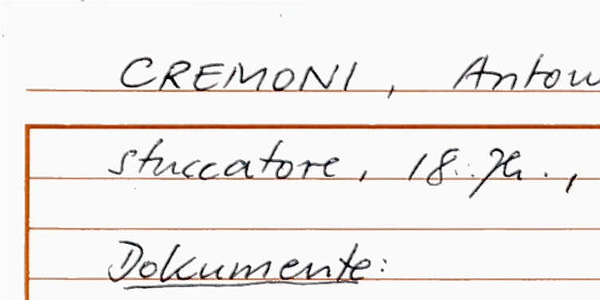 CREMONI, Anton
stuccatore, 18. Jh.,
Dokumente: